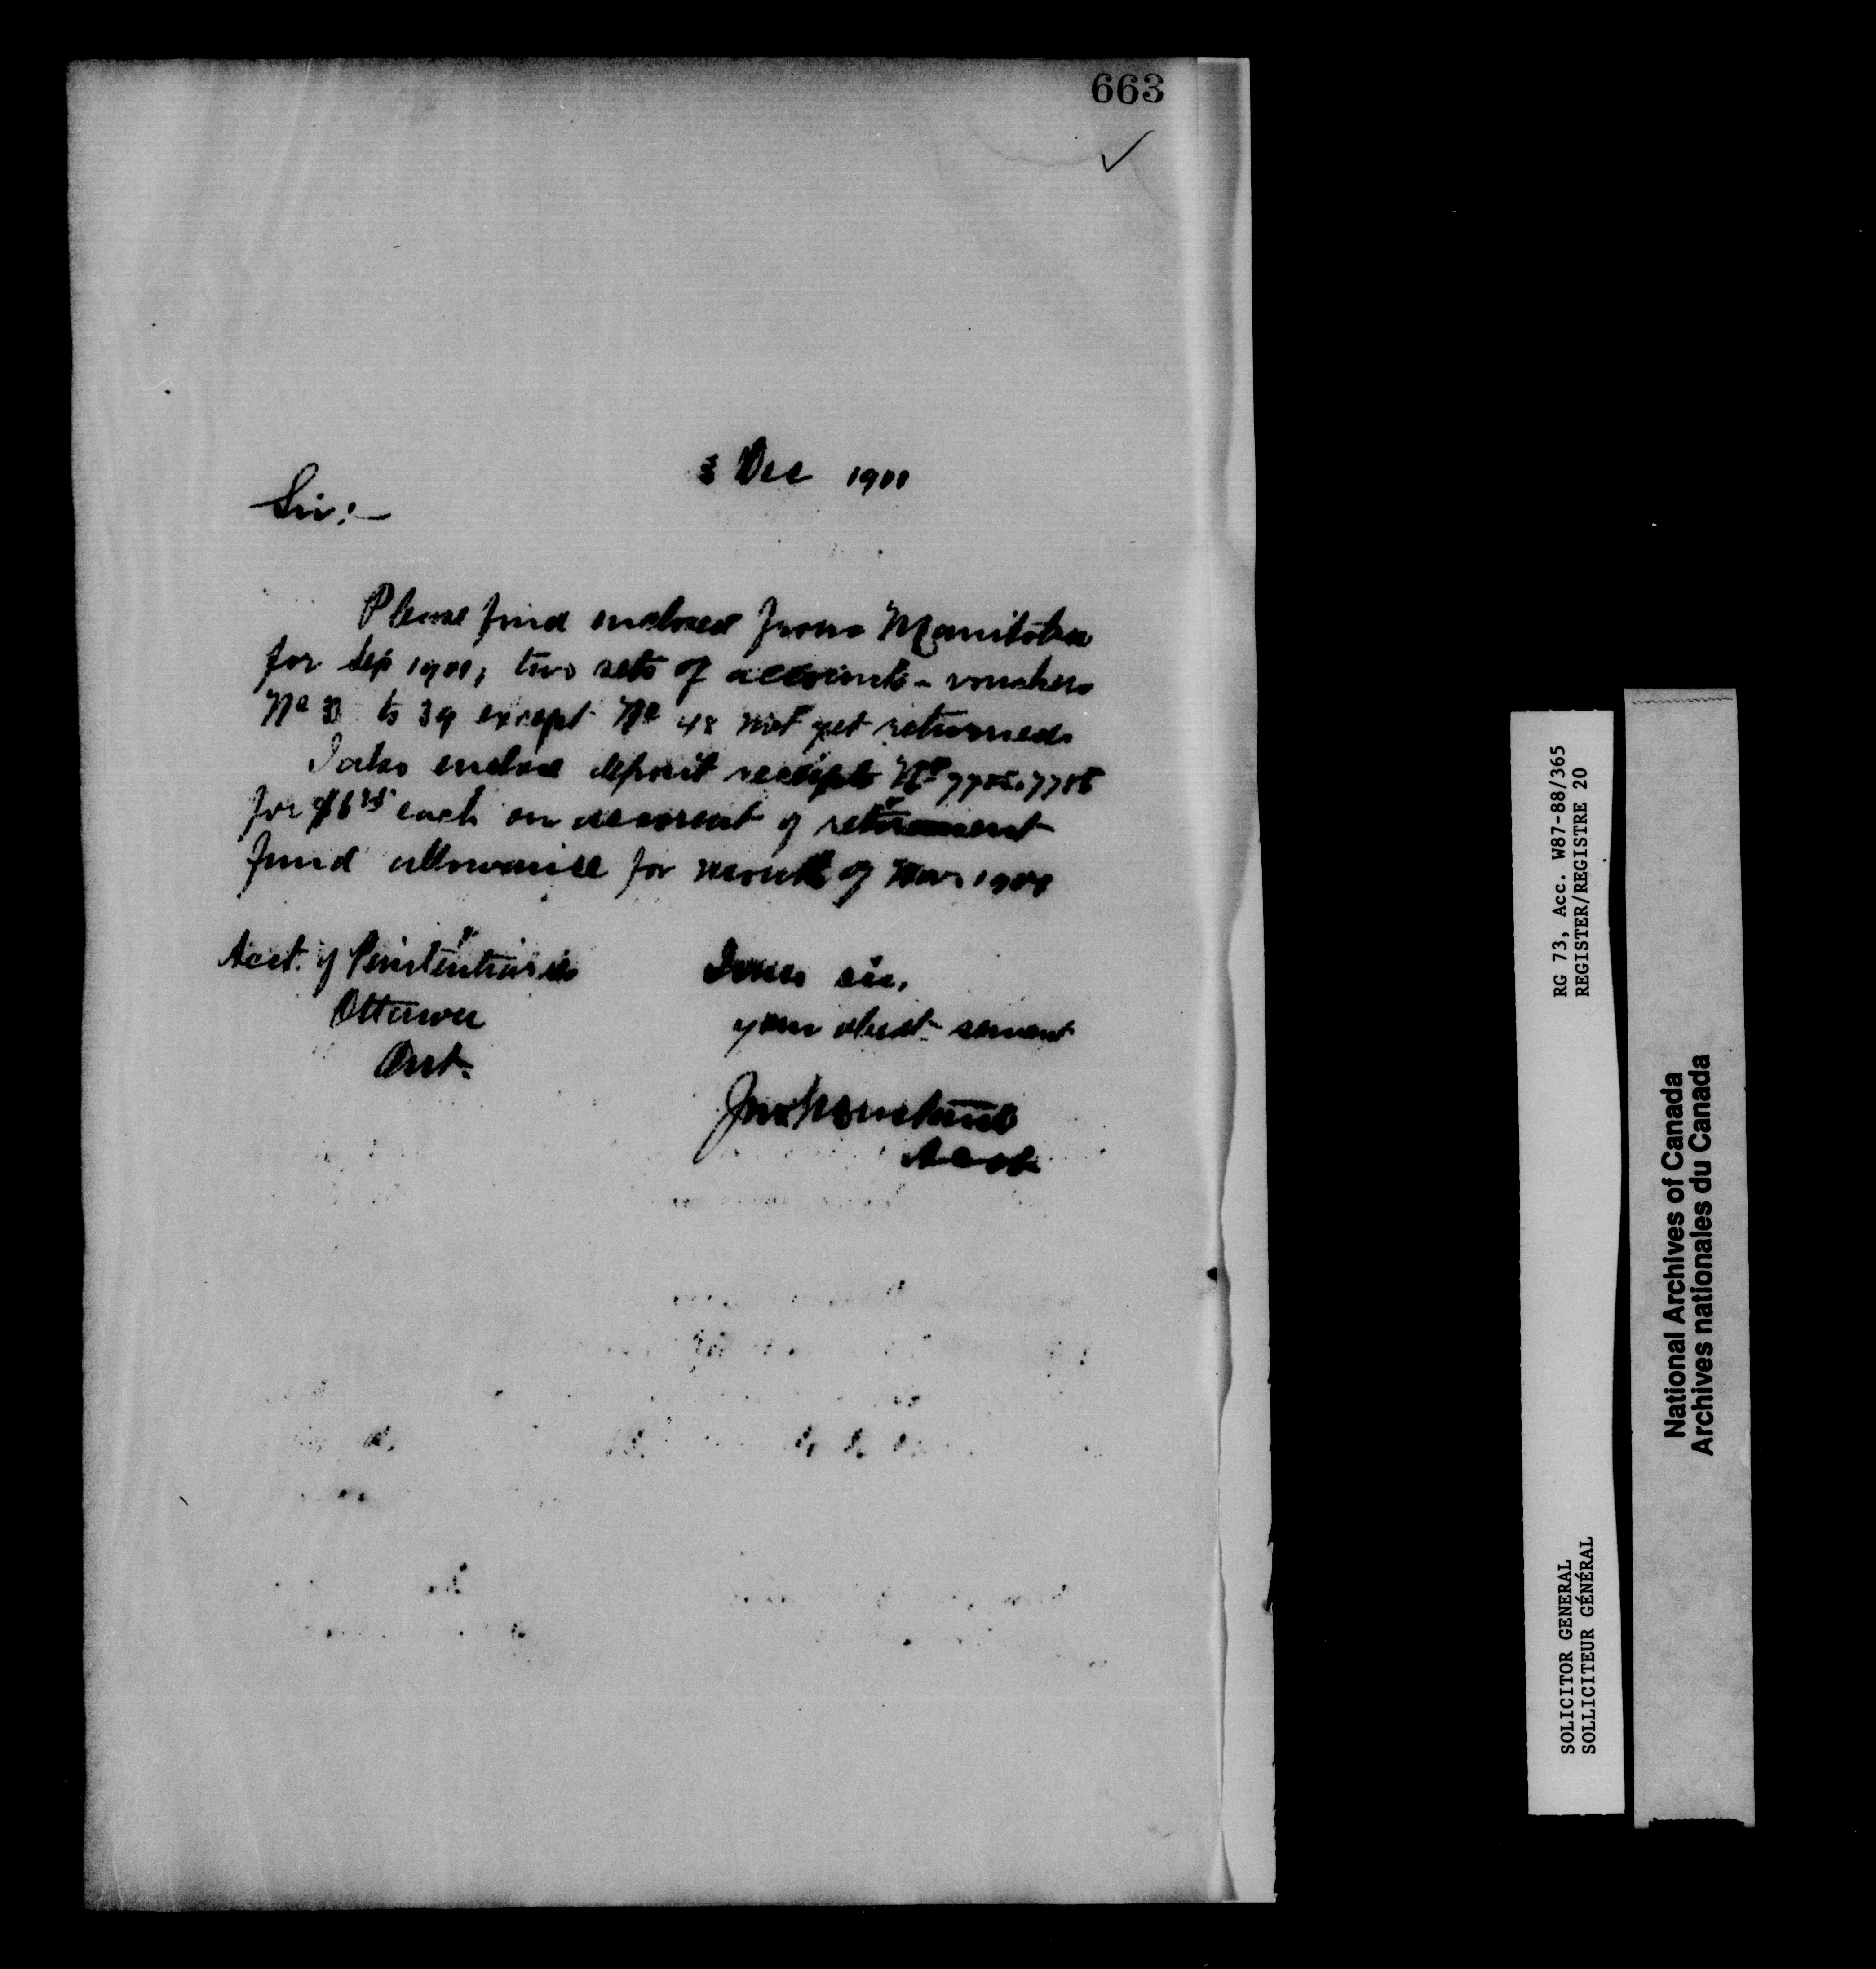 663
3 Dec 1900
Sir:—
Please find enclosed from Manitoba
for Sep 1900, two sets of accounts - vouchers
No to 39 except No 48 not yet returned
I also enclose deposit receipts Nos
for each on account of retirement
fund allowance for month of Nov 1900
Acct. of Penitentiaries
Ottawa
Ont.
I am sir,
your obedt servant
Acct
RG 73, Acc. W87-88/365
REGISTER/REGISTRE 20
SOLICITOR GENERAL
SOLLICITEUR GÉNÉRAL
National Archives of Canada
Archives nationales du Canada